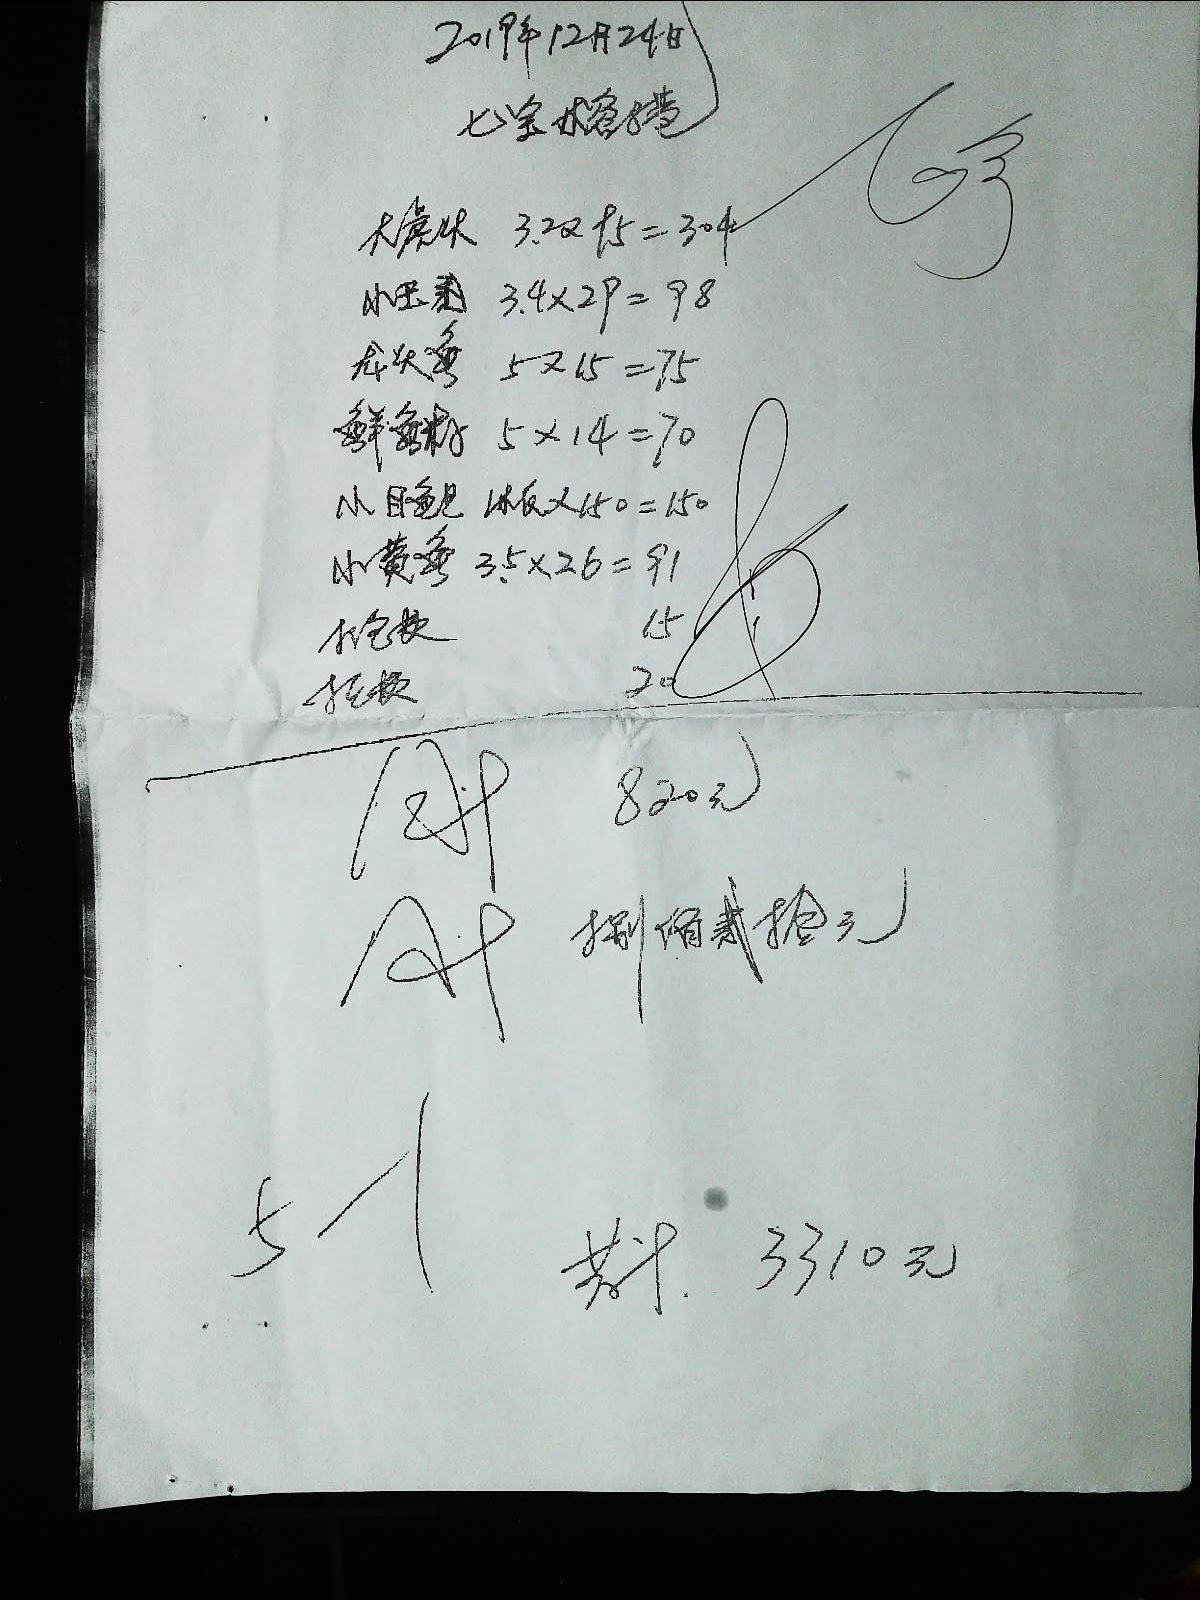 2019年12月24日
七宝
大虎头 3.2×95=304
小玉米 3.4×29=98
龙头鱼 5×15=75
鲜鱿籽 5×14=70
小目鱼 1板×150=150
小黄鱼 3.5×26=91
打包费 15
20
合计 820元
合计 捌佰贰拾元
5-1
共计. 3310元